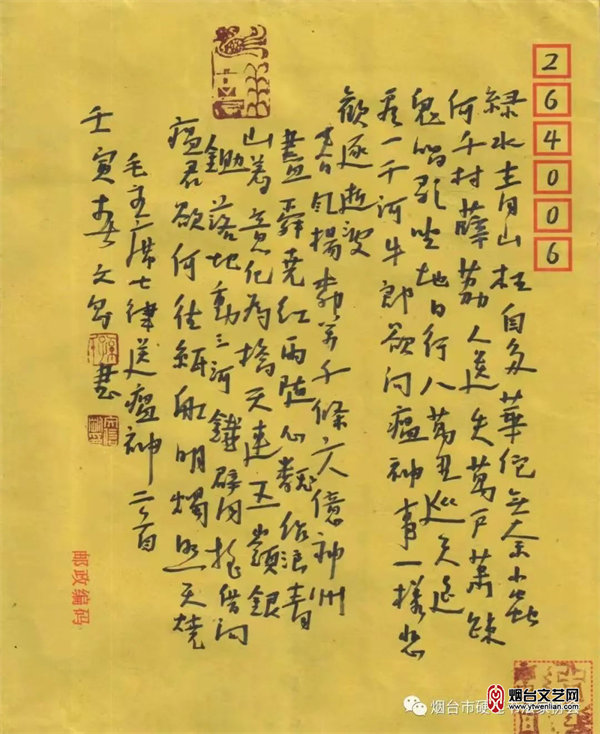 264006
緑水青山枉自多華佗无奈小虫
何千村薜荔人遗矢萬户蕭疎
鬼唱歌坐地日行八萬里巡天遥
看一千河牛郎欲问瘟神事一樣悲
歡逐逝波
春风揚柳萬千條六億神州
盡舜堯红雨随心翻作浪青
山着意化为橋天連五嶺銀
鋤落地動三河鐵臂摇借问
瘟君欲何往纸船明燭照天燒
毛主席七律送瘟神二首
壬寅春文書
邮政编码
烟台市硬
烟台文艺网
www.ytwenlian.com